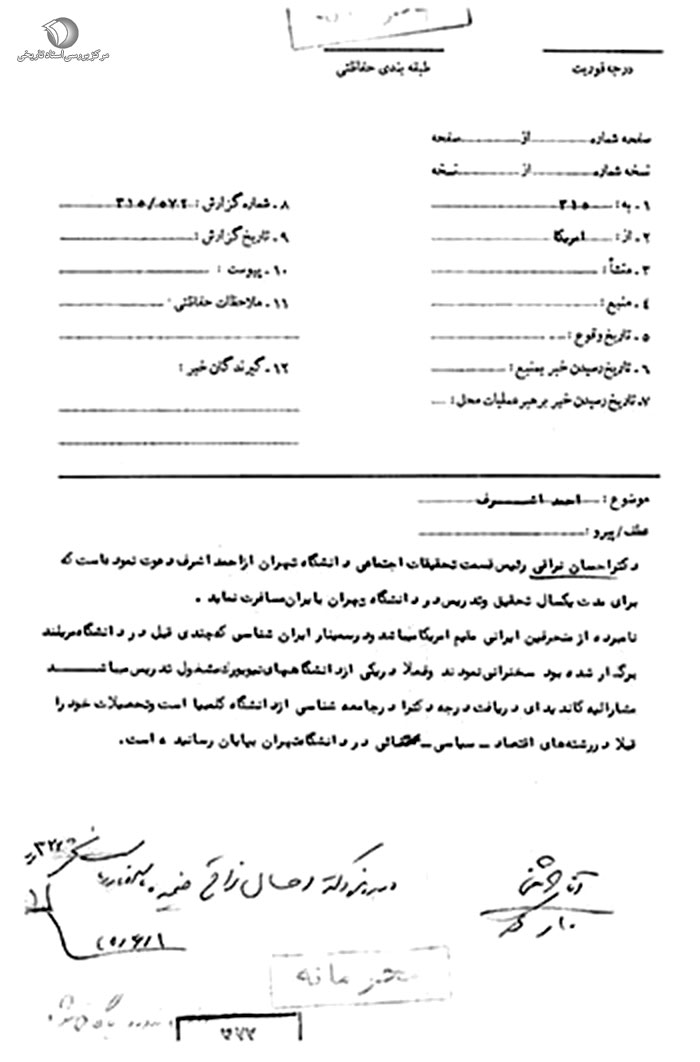 مرکز بررسی اسناد تاریخی
درجه فوریت
طبقه بندی حفاظتی
صفحه شماره از صفحه
نسخه شماره از نسخه
۱ـ به: ۳۱۵
۲ـ از: امریکا
۳ـ منشأ:
۴ـ منبع:
۵ـ تاریخ وقوع:
۶ـ تاریخ رسیدن خبر بمنبع:
۷ـ تاریخ رسیدن خبر برهبر عملیات محل:
۸ـ شماره گزارش: ۳۱۵/۵۷۲
۹ـ تاریخ گزارش:
۱۰ـ پیوست:
۱۱ـ ملاحظات حفاظتی:
۱۲ـ گیرندگان خبر:
موضوع: احمد اشرف
عطف/پیرو:
دکتر احسان نراقی رئیس قسمت تحقیقات اجتماعی دانشگاه تهران از احمد اشرف دعوت نموده است که
برای مدت یکسال تحقیق و تدریس در دانشگاه تهران بایران مسافرت نماید .
نامبرده از منحرفین ایرانی مقیم امریکا میباشد و در سمینار ایران شناسی که چندی قبل در دانشگاه مریلند
برگذار شده بود سخنرانی نمودند و فعلا در یکی از دانشگاههای نیویورک مشغول تدریس میباشد
مشارالیه کاندیدای دریافت درجه دکترا در جامعه شناسی از دانشگاه کلمبیا است و تحصیلات خود را
قبلا در رشته‌های اقتصاد ـ سیاسی ـ قضائی در دانشگاه تهران بپایان رسانیده است.
محرمانه